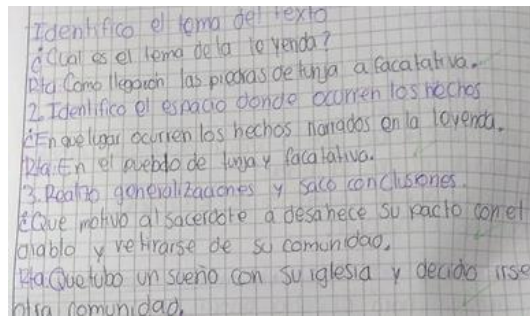 Identifico el tema del texto
¿Cual es el tema de la leyenda?
Rta Como llegaron las piedras de tunja a facatativa.
2. Identifico el espacio donde ocurren los hechos
¿En que lugar ocurren los hechos narrados en la leyenda.
Rta: En el pueblo de tunja y facatativa.
3. Realizo generalizaciones y saco conclusiones.
¿Que motivo al sacerdote a desahece su pacto con el
diablo y retirarse de su comunidad.
Rta. Que tubo un sueño con su iglesia y decido irse
otra comunidad.